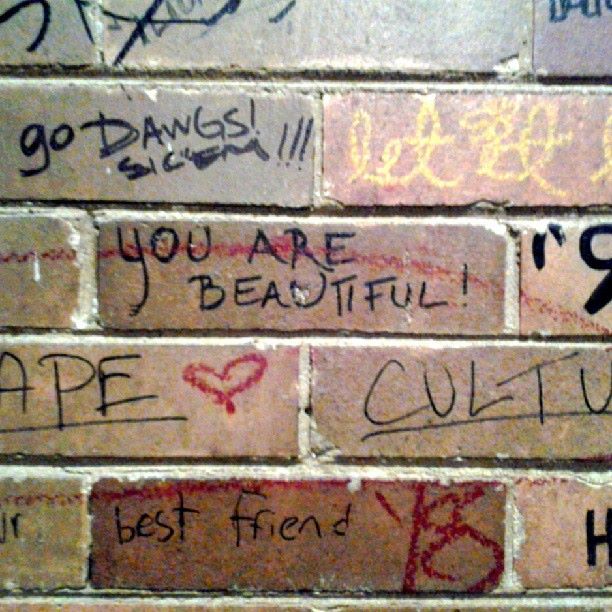 go DAWGS!
SIC'EM !!!
let it
YOU ARE
BEAUTIFUL!
APE CULTU
best friend
H